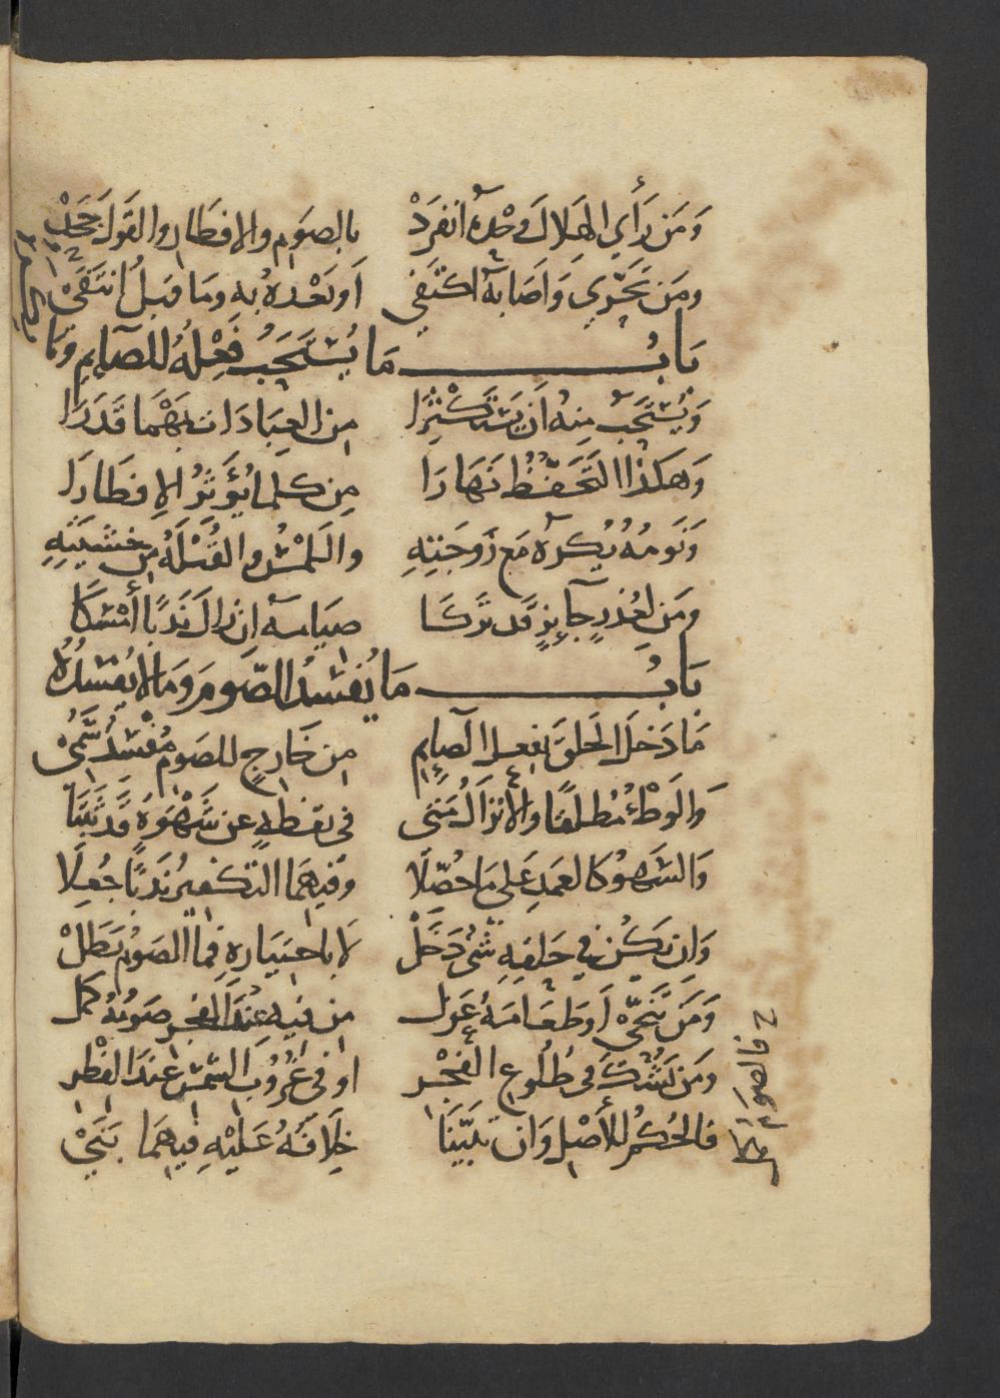 وَمَن رَأَي الهِلالَ وحْدَهُ انفَرَدْ بالصوَمِ والافطار والقَولَ جَحَدْ
ومَن تَحَرّي وَاَصَابَهُ اكتَفى اَو بَعْدَهُ بِهِ وَمَا قَبلُ انتَفَى
بَابُ مَا يُستَحَبُ فِعْلُهُ للصآيِمِ وَمَا يكره
وَيُستَحَب مِنهُ اَن يَستَكثِرَا مِن العِبَادَات بِهَا قَدَرَا
وَهكَذا التَحَفُّظُ نَهَارَا مِن كلما يُؤثِرُ الافطَارَا
وَنَومُهُ يُكرَه مَع زَوجَتِهِ واللمْسُ والقُبْلَةُ مِن خشيَتِهِ
ومَن لِعُذرٍ جآيِزٍ قَد تَرَكَا صِيَامَه اِن زالَ نَدبًا اَمْسَكَا
بَابُ مَا يُفسِدُ الصّومَ وَمَا لا يُفسِدُهُ
مَا دَخَلَ الحَلقَ بفعل الصايم مِن خَارجٍ للصَوم مُفْسِدٌ سُمِيْ
وَالوَطْئُ مُطلقًا والانزَالُ مَتى فى يقظةٍ عن شَهْوَةٍ قَد ثَبَتَا
وَالسَهوُ كالعَمدِ عَلى مَا حُصِّلَا وَفيهِمَا التكفيرُ نَدبًا جُعِلَا
وَاِن يَكُن في حَلقِهِ شَيٌ دَخَلْ لَا باختيَارِهِ فما الصَومُ بَطَلْ
وَمَن يُنَحّي اَو طَعَامَهُ عَزَل مِن فيهِ عِندَ الفجرِ صَومُهُ كَمَل
ومَن يَشُكَّ في طُلوعِ الفَجْرِ او في غُرُوبِ الشمْسِ عندَ الفِطْرِ
فالحُكمُ للأَصْلِ وَان تَبَيَّنَا خِلَافَهُ عَلَيْهِ فيهِمَا بَنَيْ